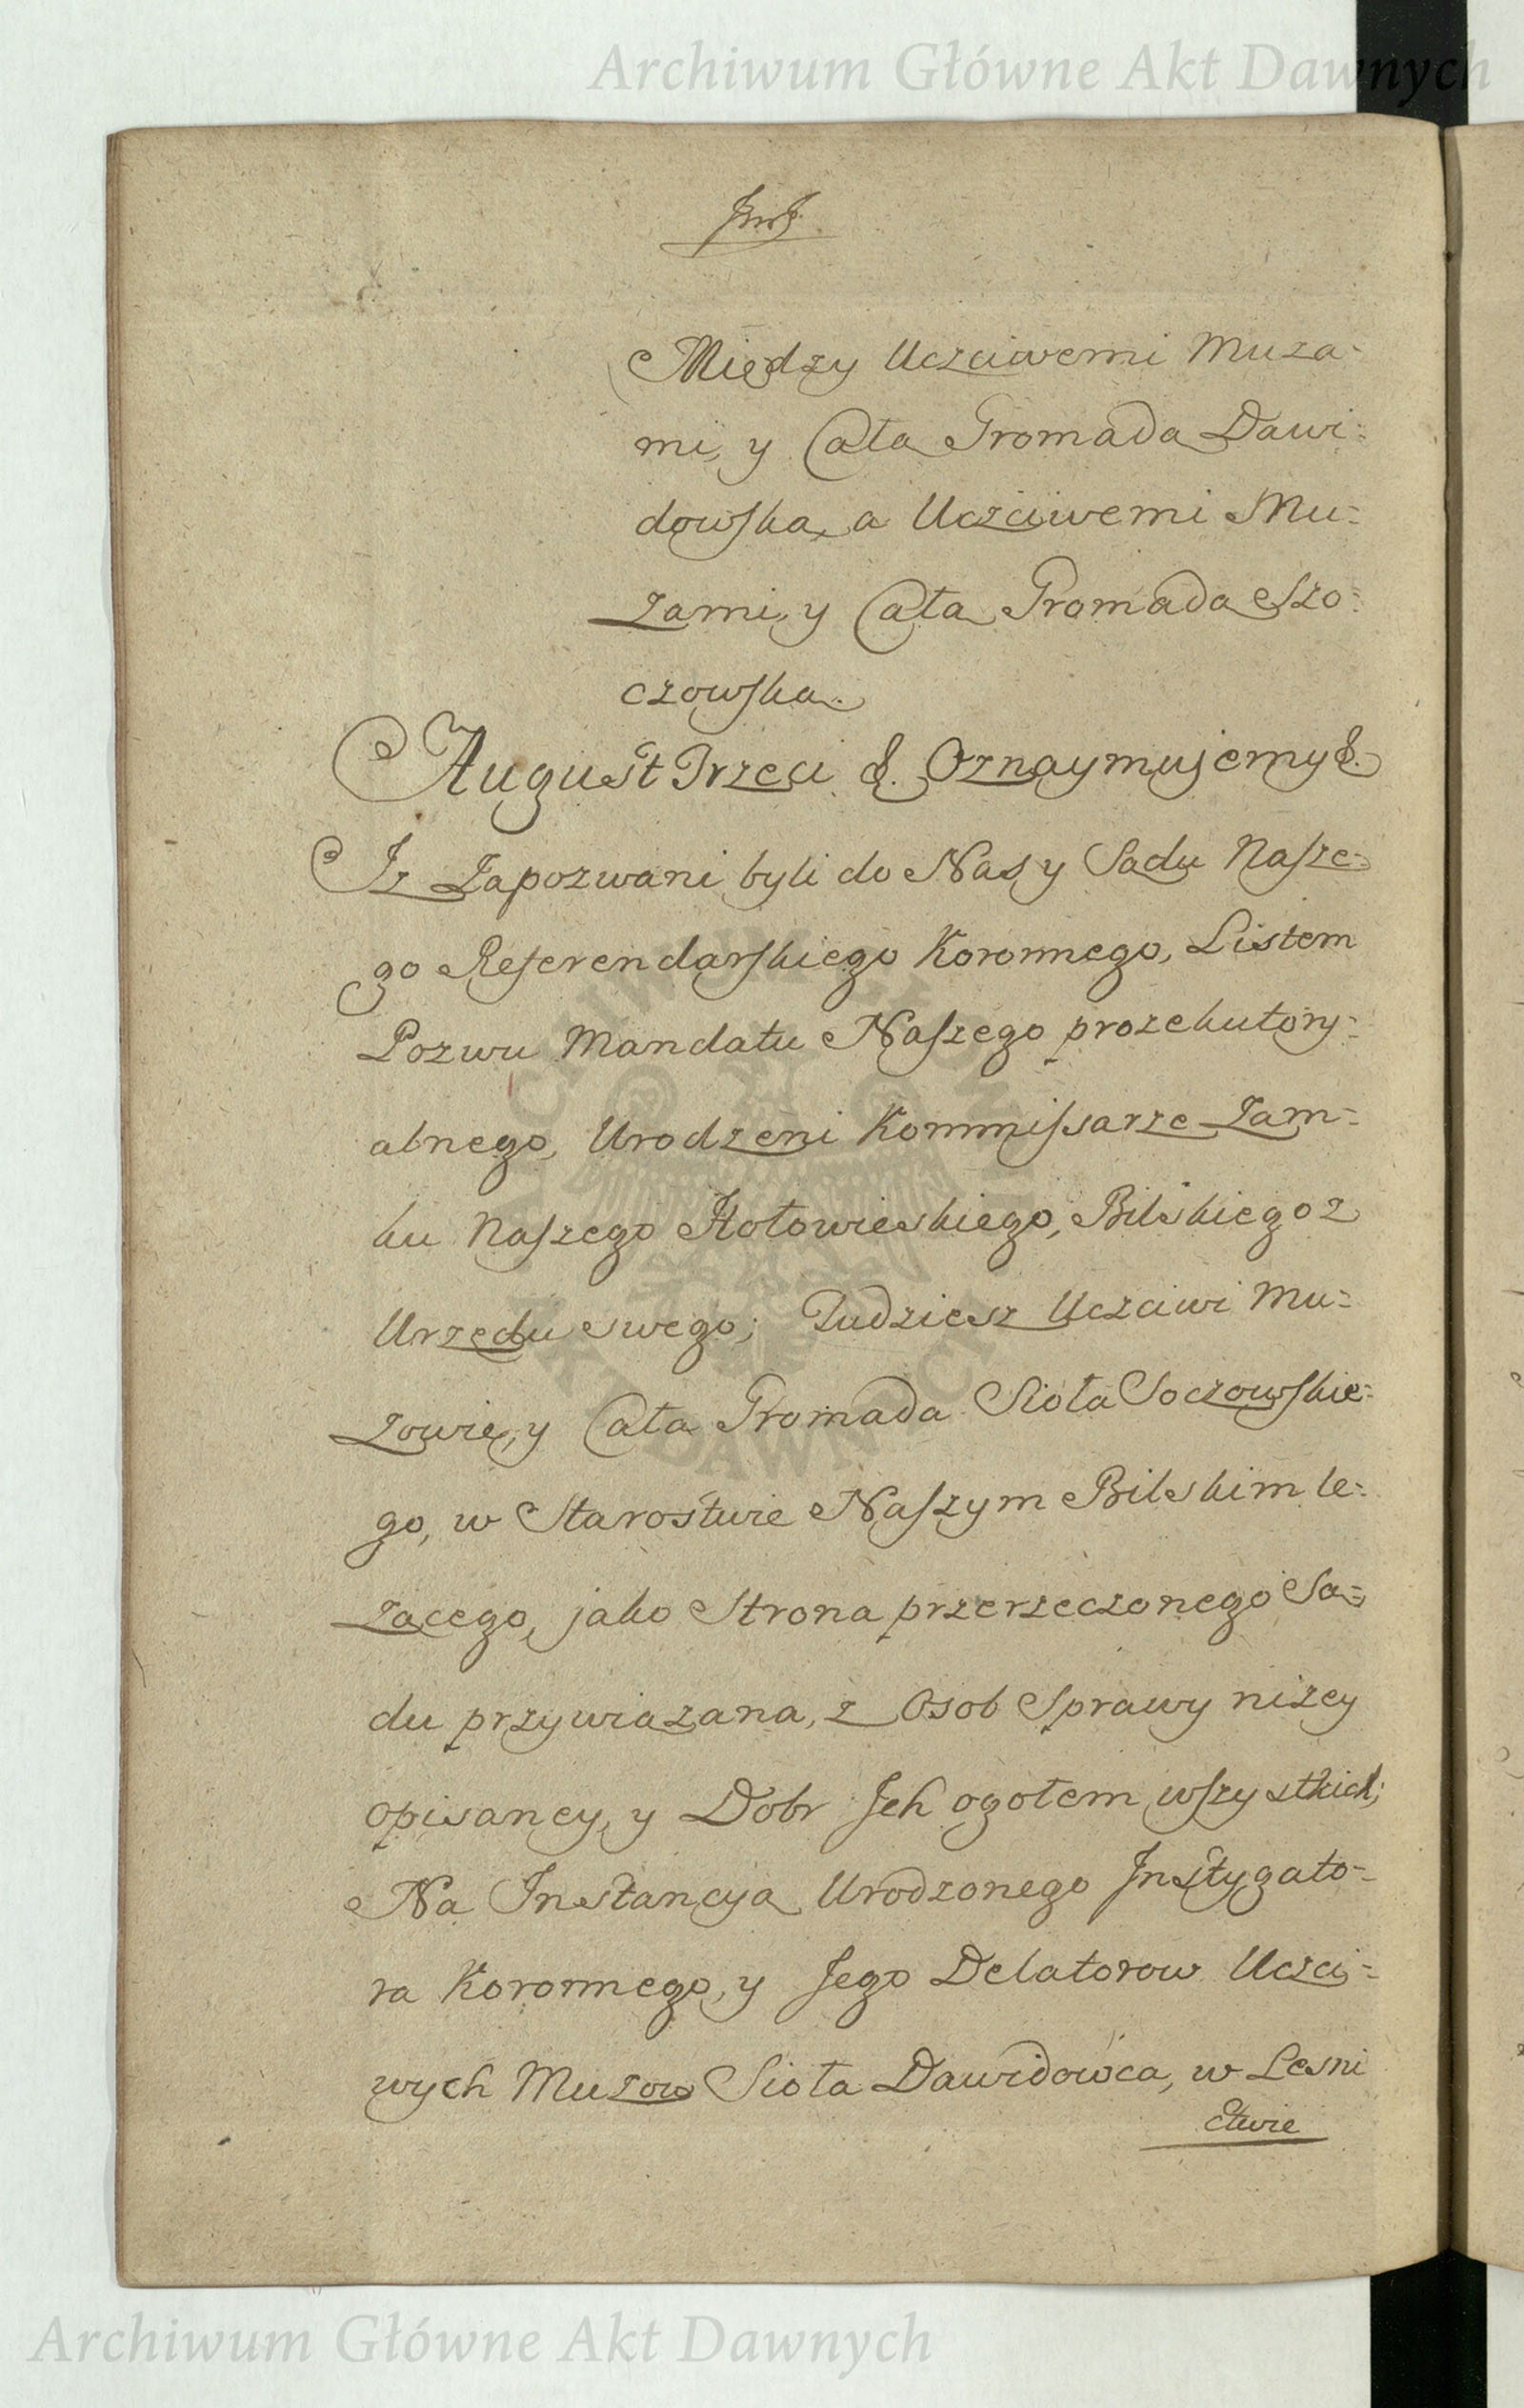 Archiwum Główne Akt Dawnych
Między Uczciwemi Muza-
mi, y Cała Gromada Dawi-
dowska, a Uczciwemi Mu-
zami, y Cała Gromada Szo-
czowska.
August Trzeci &. Oznaymujemy &.
Iz Zapozwani byli do Nas y Sadu Nasze-
go Referendarskiego Koronnego, Listem
Pozwu Mandatu Naszego prozekutory-
alnego, Urodzeni Kommissarze Zam-
ku Naszego Hołowieskiego, Bilskiego z
Urzędu swego; Tudziesz Uczciwi Mu-
zowie, y Cała Gromada Sioła Soczowskie-
go, w Starostwie Naszym Bilskim le-
zącego, jako Strona przerzeczonego Sa-
du przywiazana, z Osob Sprawy nizey
opisaney, y Dobr Jch ogołem wszystkich;
Na Instancya Urodzonego Jnstygato-
ra Koronnego, y Jego Delatorow Uczci-
wych Muzow Sioła Dawidowca, w Lesni
ctwie
ARCHIWUM GŁÓWNE
AKT DAWNYCH
Archiwum Główne Akt Dawnych